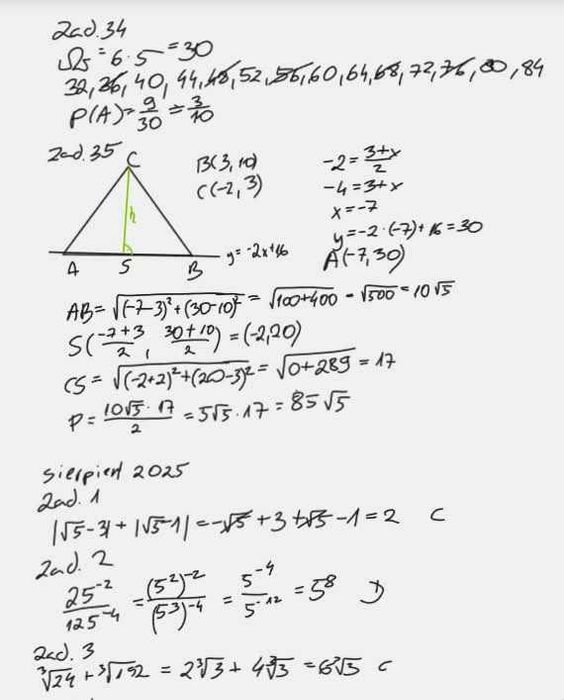 zad. 34
Ω = 6·5 = 30
32, 36, 40, 44, 48, 52, 56, 60, 64, 68, 72, 76, 80, 84
P(A) = 9/30 = 3/10
zad. 35
C
h
A S B
y = -2x+16
B(3, 10)
C(-2, 3)
-2 = (3+x)/2
-4 = 3+x
x = -7
y = -2·(-7)+16 = 30
A(-7, 30)
AB = √((-7-3)²+(30-10)²) = √(100+400) = √500 = 10√5
S((-7+3)/2, (30+10)/2) = (-2, 20)
CS = √((-2+2)²+(20-3)²) = √(0+289) = 17
P = (10√5·17)/2 = 5√5·17 = 85√5
sierpień 2025
zad. 1
|√5-3|+|√5-1| = -√5+3+√5-1 = 2 C
zad. 2
25⁻²/125⁻⁴ = (5²)⁻²/(5³)⁻⁴ = 5⁻⁴/5⁻¹² = 5⁸ D
zad. 3
∛24 + ∛192 = 2∛3 + 4∛3 = 6∛3 C